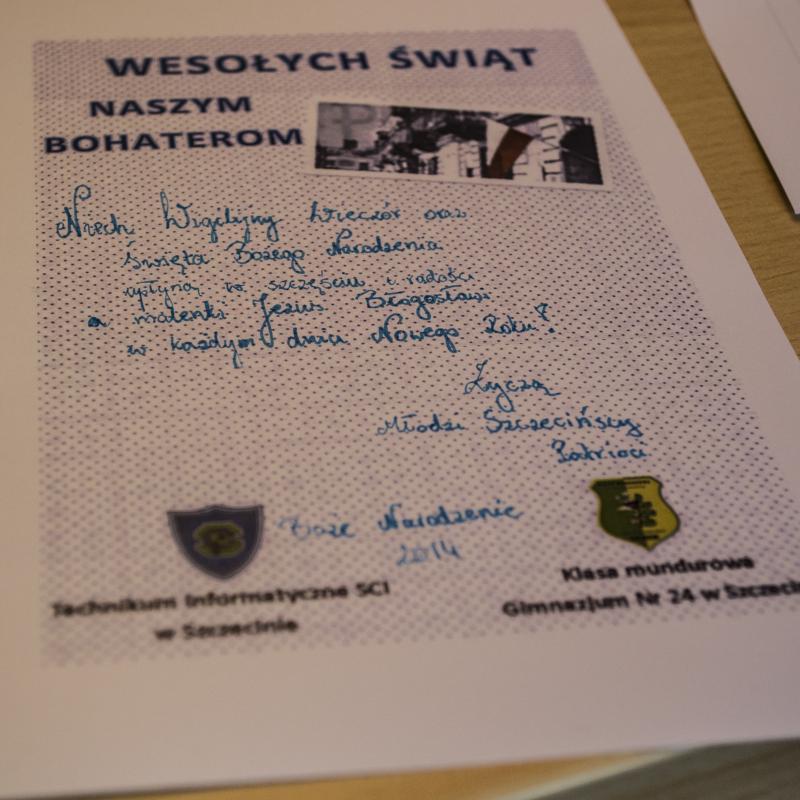 WESOŁYCH ŚWIĄT
NASZYM
BOHATEROM
Niech Wigilijny Wieczór oraz
Święta Bożego Narodzenia
upłyną w szczęściu i radości
a maleńki Jezus Błogosławi
w każdym dniu Nowego Roku!
Życzą
Młodzi Szczecińscy
Patrioci
Boże Narodzenie
2014
Technikum Informatyczne SCI
w Szczecinie
Klasa mundurowa
Gimnazjum Nr 24 w Szczeci